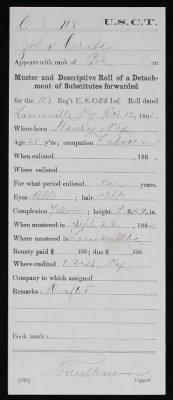 C | 118 | U.S.C.T.
John
Appears with rank of Pvt. on
Muster and Descriptive Roll of a Detachment
of Substitutes forwarded
for the 118 Reg't U. S. Col'd Inf. Roll dated
Louisville Ky Oct 12, 1864.
Where born Henry Ky
Age 20 y'rs; occupation Laborer
When enlisted , 186 .
Where enlisted
For what period enlisted one years.
Eyes Blk ; hair Blk
Complexion Yellow ; height 5 ft. 4 in.
When mustered in Sept 22 , 1864
Where mustered in Louisville
Bounty paid $ 100 ; due $ 100
Where credited 5 Dist Ky
Company to which assigned
Remarks: Draft
Book mark:
Faulkner
(339) Copyist.